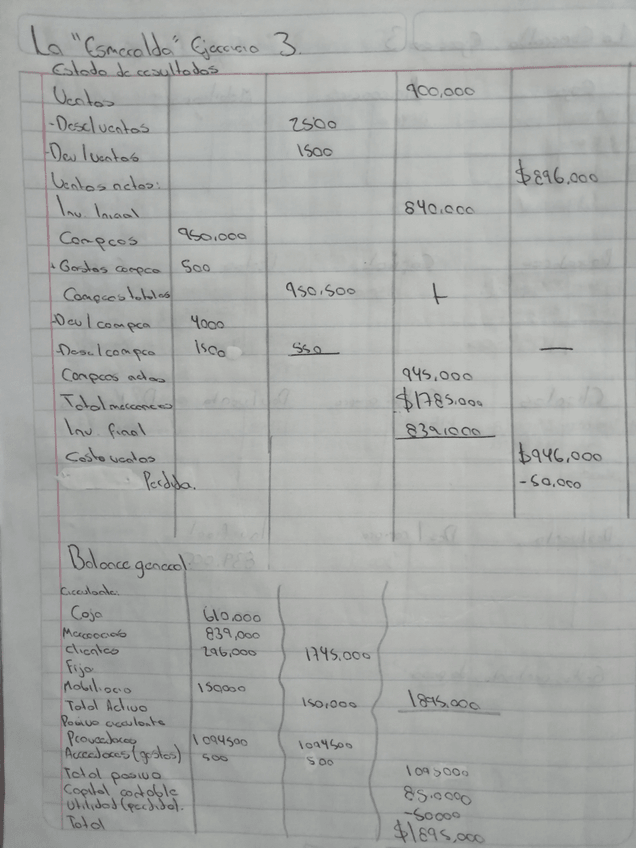 La "Esmeralda" Ejercicio 3.
Estado de resultados
Ventas 900,000
-Desc/ventas 2500
-Dev/ventas 1500
Ventas netas: $896,000
Inv. Inicial 840.000
Compras 950,000
+Gastos compra 500
Compras totales 950,500 +
-Dev/compra 4000
-Desc/compra 1500 550 —
Compras netas 945,000
Total mercancias $1785.000
Inv. final 839,000
Costo ventas $946,000
Perdida. -50,000
Balance general
Circulante:
Caja 610.000
Mercancias 839,000
Clientes 296,000 1745,000
Fijo
Mobiliario 150000
Total Activo 150,000 1895,000
Pasivo circulante
Proveedores 1094500 1094500
Acreedores (gastos) 500 500
Total pasivo 1095000
Capital contable 85.0000
Utilidad (perdida). -50000
Total $1895,000